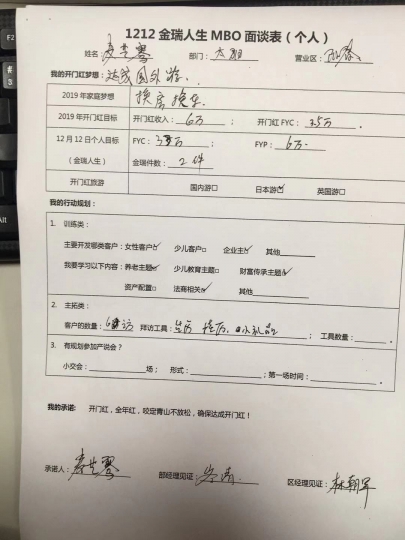 1212 金瑞人生 MBO 面谈表（个人）
姓名： 部门： 营业区：
我的开门红梦想： 达成国外游.
2019 年家庭梦想 换房 换车.
2019 年开门红目标 开门红收入： 6万 ； 开门红 FYC： 万
12 月 12 日个人目标 FYC： 万 ； FYP： 6万
（金瑞人生） 金瑞件数： 2件
开门红旅游 国内游□ 日本游☑ 英国游□
我的行动规划：
1. 训练类：
主要开发哪类客户：女性客户☑ 少儿客户□ 企业主☑ 其他
我要学习以下内容：养老主题☑ 少儿教育主题□ 财富传承主题☑
资产配置□ 法商相关☑ 其他
2. 主拓类：
客户的数量： 访 拜访工具： 小礼品 ； 工具数量： ；
3. 有规划参加产说会？
小交会： 场； 形式： ；第一场时间： ；
我的承诺： 开门红，全年红，咬定青山不放松，确保达成开门红！
承诺人： 部经理见证： 区经理见证： 林朝军
F2
#
3
Alt